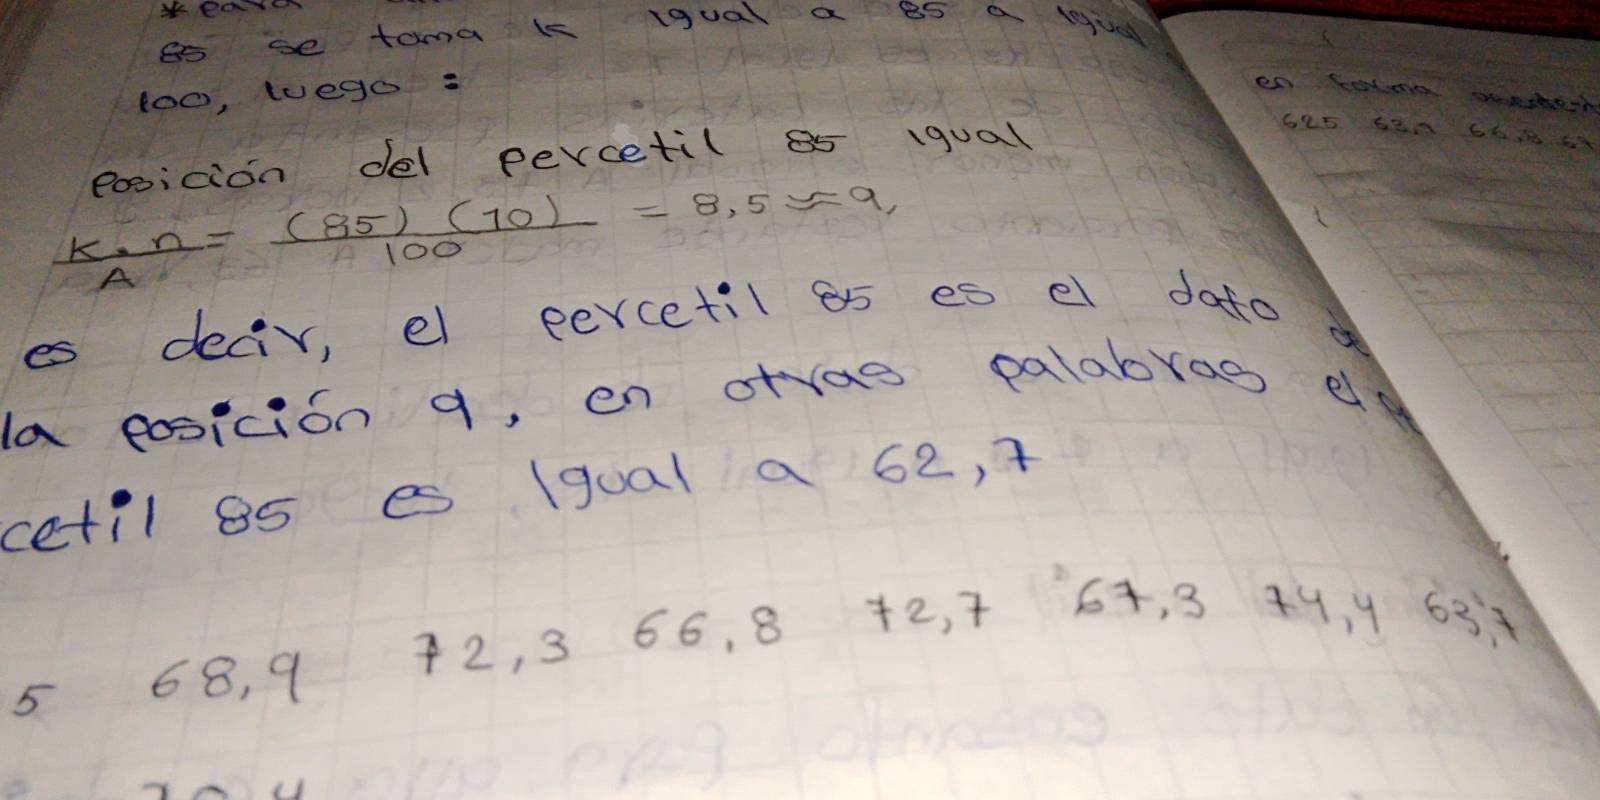 * para
85 se toma k igual a 85 a igual
100, luego :
Posición del percetil 85 igual
K.n/A = (85) (10)/100 = 8,5 ≈ 9,
es decir, el percetil 85 es el dato de
la posición 9, en otras palabras el
cetil 85 es igual a 62,7
5 68,9 72,3 66,8 72,7 67,3 74,4 63,7
70,4
en forma
625 63,7 66,8 67